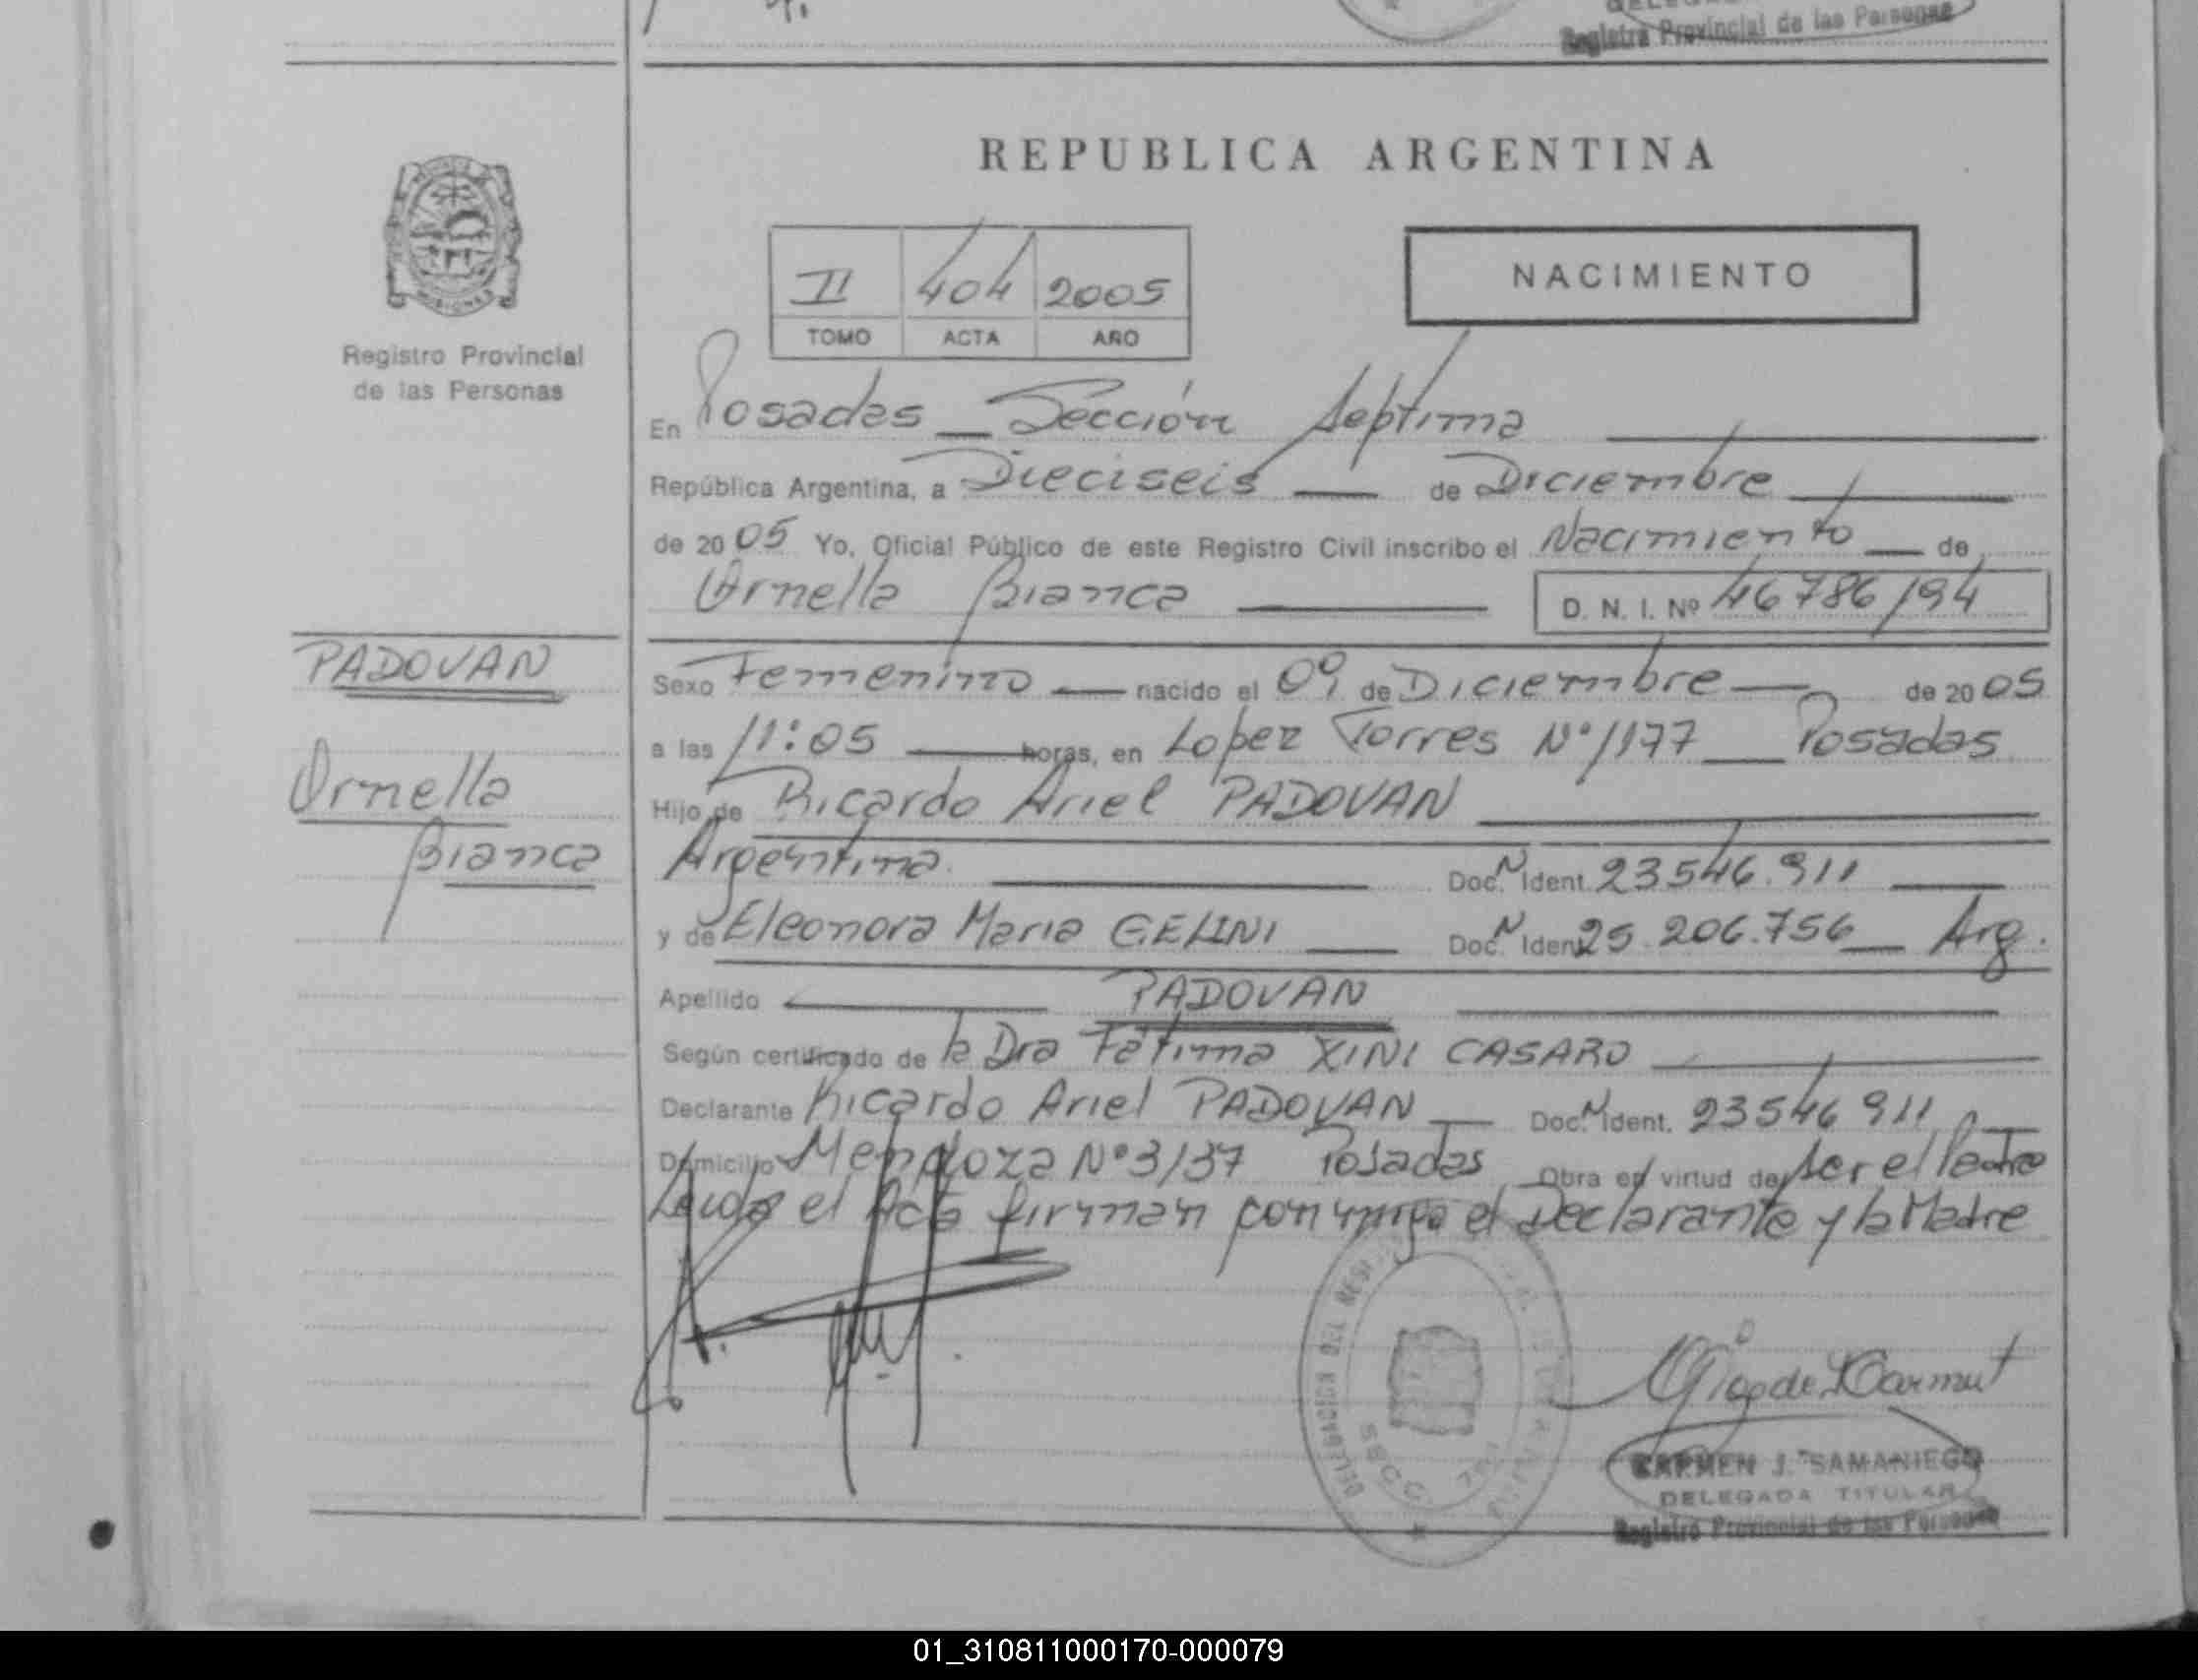 Registro Provincial de las Personas
REPUBLICA ARGENTINA
NACIMIENTO
II 404 2005
TOMO ACTA AÑO
Registro Provincial
de las Personas
En Posadas — Sección Septima
República Argentina, a Dieciseis — de Diciembre
de 2005 Yo, Oficial Público de este Registro Civil inscribo el Nacimiento — de
Ornella Bianca — D. N. I. Nº 46786194
PADOVAN
Ornella
Bianca
Sexo Femenino — nacido el 09 de Diciembre — de 2005
a las 11:05 — horas, en Lopez Torres Nº 1177 — Posadas
Hijo de Ricardo Ariel PADOVAN
Argentina. — Doc. N Ident. 23546.911
y de Eleonora Maria GELINI — Doc. N Ident. 25.206.756 — Arg.
Apellido — PADOVAN
Según certificado de la Dra Fátima XINI CASARO
Declarante Ricardo Ariel PADOVAN — Doc. N Ident. 23546 911
Domicilio Mendoza Nº 3137 Posadas Obra en virtud de ser el Padre
Leida el Acta firman conmigo el Declarante y la Madre
DELEGACION DEL
SECC. 7
CARMEN J. SAMANIEGO
DELEGADA TITULAR
Registro Provincial de las Personas
01_310811000170-000079